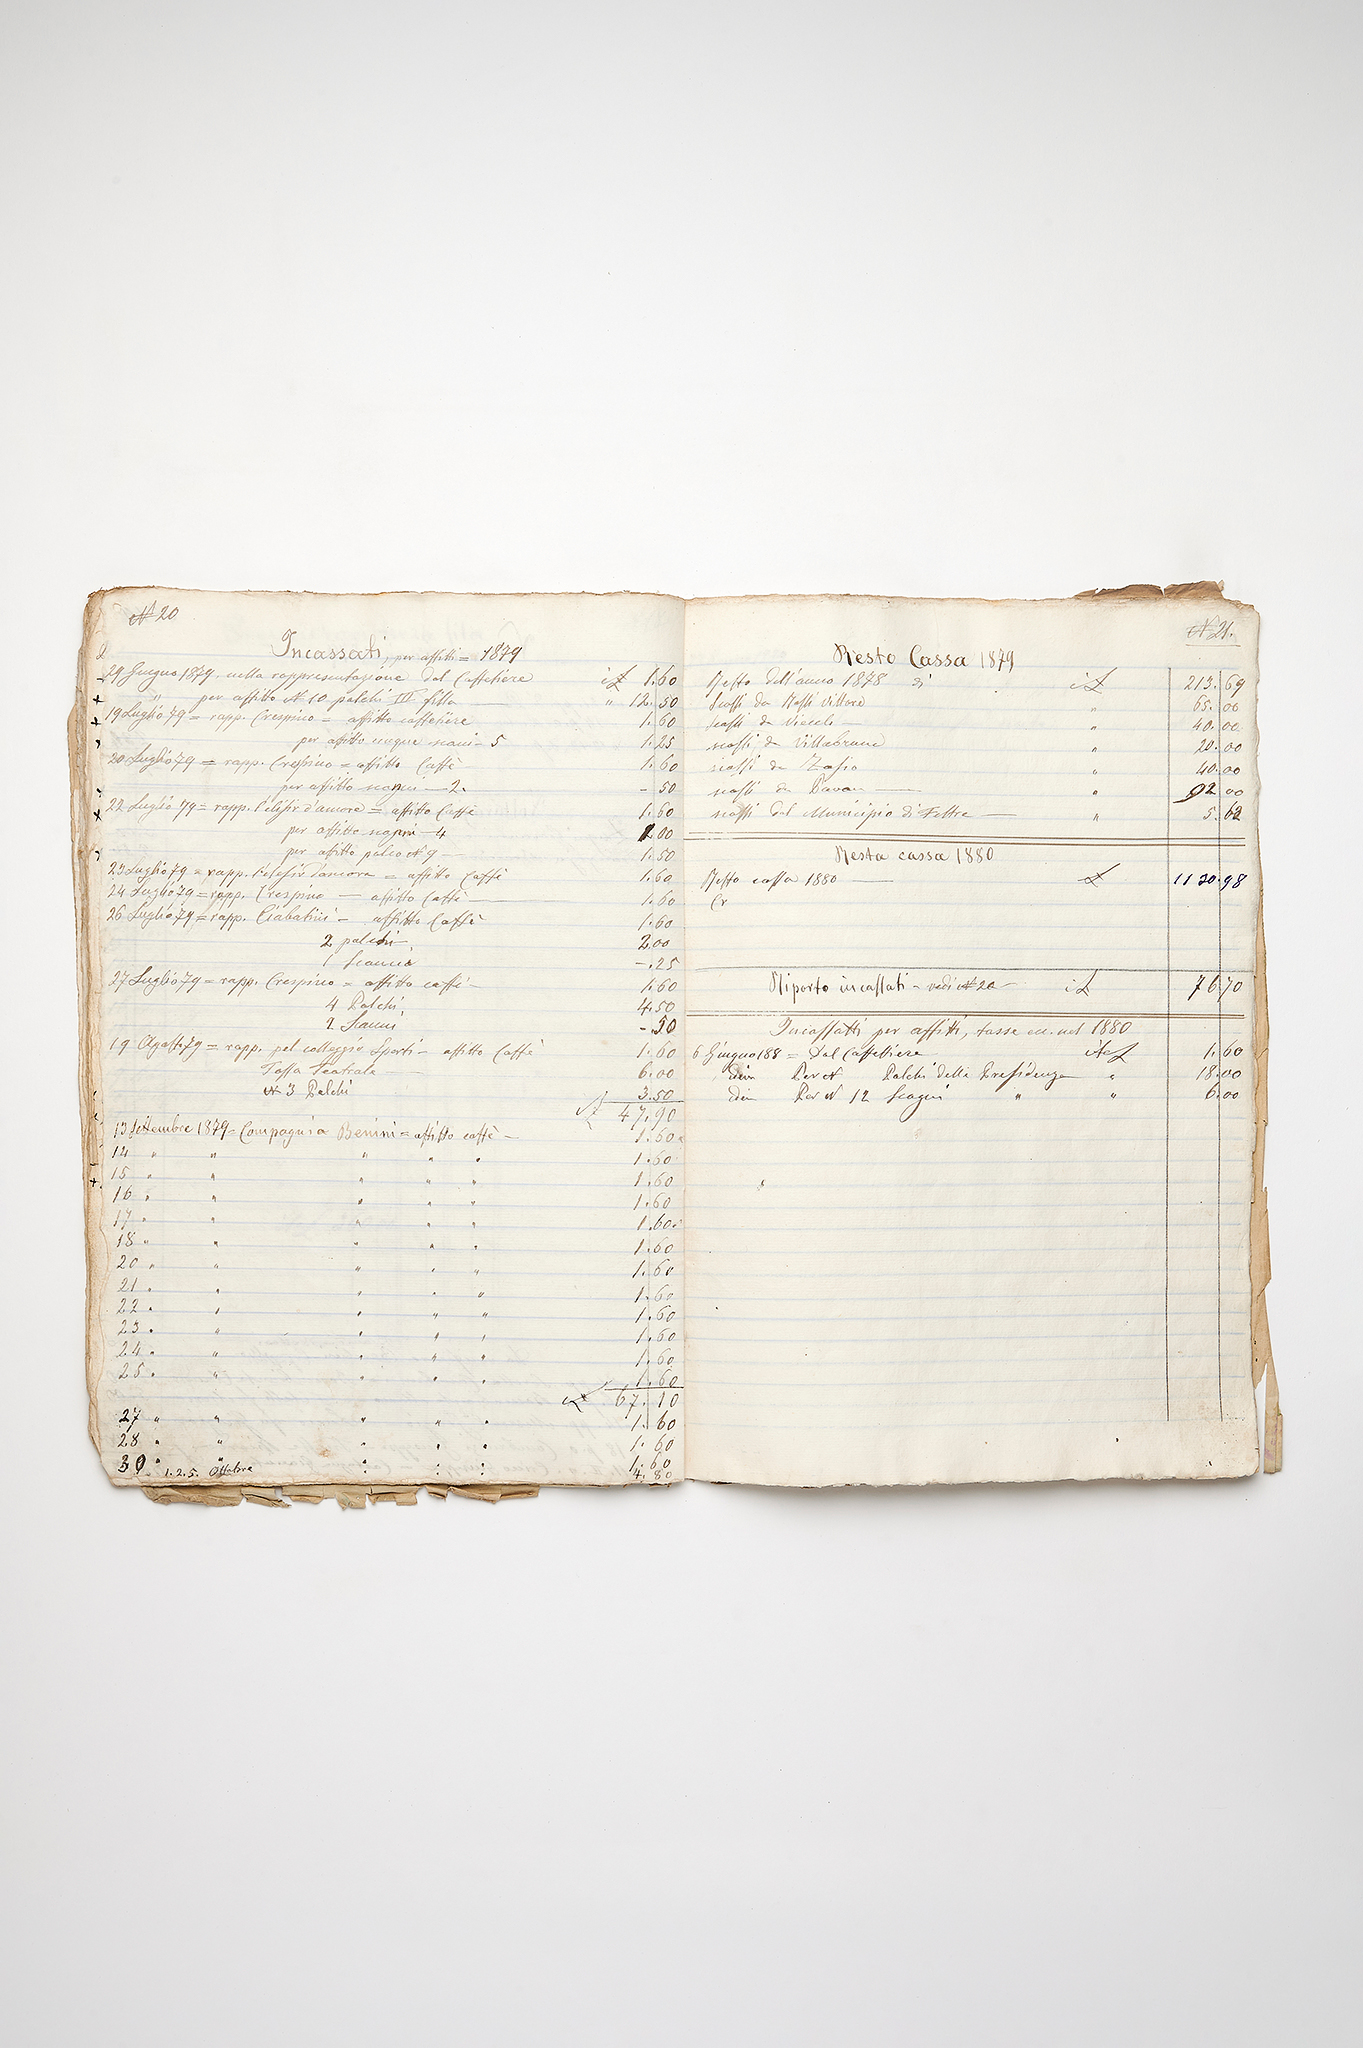 N 20
Incassati, per affitti = 1879
29 Giugno 1879. nella rappresentazione dal Caffetiere £ 1.60
" per affitto N. 10 palchi III fila " 12.50
19 Luglio 79 = rapp. Crespino = affitto caffetiere 1.60
per affitto cinque scani - 5 1.25
20 Luglio 79 = rapp. Crespino = affitto Caffè 1.60
per affitto scagni - 2. - 50
22 Luglio 79 = rapp. l'elisir d'amore = affitto Caffè 1.60
per affitto scagni - 4 1.00
per affitto palco N 9 - 1.50
23 Luglio 79 = rapp. l'elisir d'amore = affitto Caffè 1.60
24 Luglio 79 = rapp. Crespino - affitto Caffè 1.60
26 Luglio 79 = rapp. Ciabatini - affitto Caffè 1.60
2 palchi 2.00
1 scanni -.25
27 Luglio 79 = rapp. Crespino = affitto caffè 1.60
4 Palchi 4.50
2 Scanni -.50
19 Agosto 79 = rapp. pel colleggio Sporti - affitto Caffè 1.60
Tassa Teatrale 6.00
N 3 Palchi 3.50
47.90
13 Settembre 1879 = Compagnia Benini = affitto caffè - 1.60
14 " " " " " 1.60
15 " " " " " 1.60
16 " " " " " 1.60
17 " " " " " 1.60
18 " " " " " 1.60
20 " " " " " 1.60
21 " " " " 1.60
22 " " " " " 1.60
23 " " " " " 1.60
24 " " " " " 1.60
25 " " " " " 1.60
67.10
27 " " " " " 1.60
28 " " " " " 1.60
30 " " " " " 1.60
1.2.5. Ottobre 4.80
N 21.
Resto Cassa 1879
Resto dell'anno 1878 di £ 213.69
Scossi da Rossi Vittore " 65.00
scossi da Vieceli " 40.00
scossi da Villabruna " 20.00
scossi da Zasio " 40.00
scossi da Pavan " 92.00
scossi dal Municipio di Feltre " 5.62
Resta cassa 1880
Resto cassa 1880 £ 1130.98
Cr
Riporto incassati - vedi N 20 £ 76.70
Incassatti per affitti, tasse ec. nel 1880
6 Giugno 188 = Dal Caffettiere 1.60
idem Per N Palchi della Presidenza " 18.00
idem Per N 12 Scagni " " 6.00